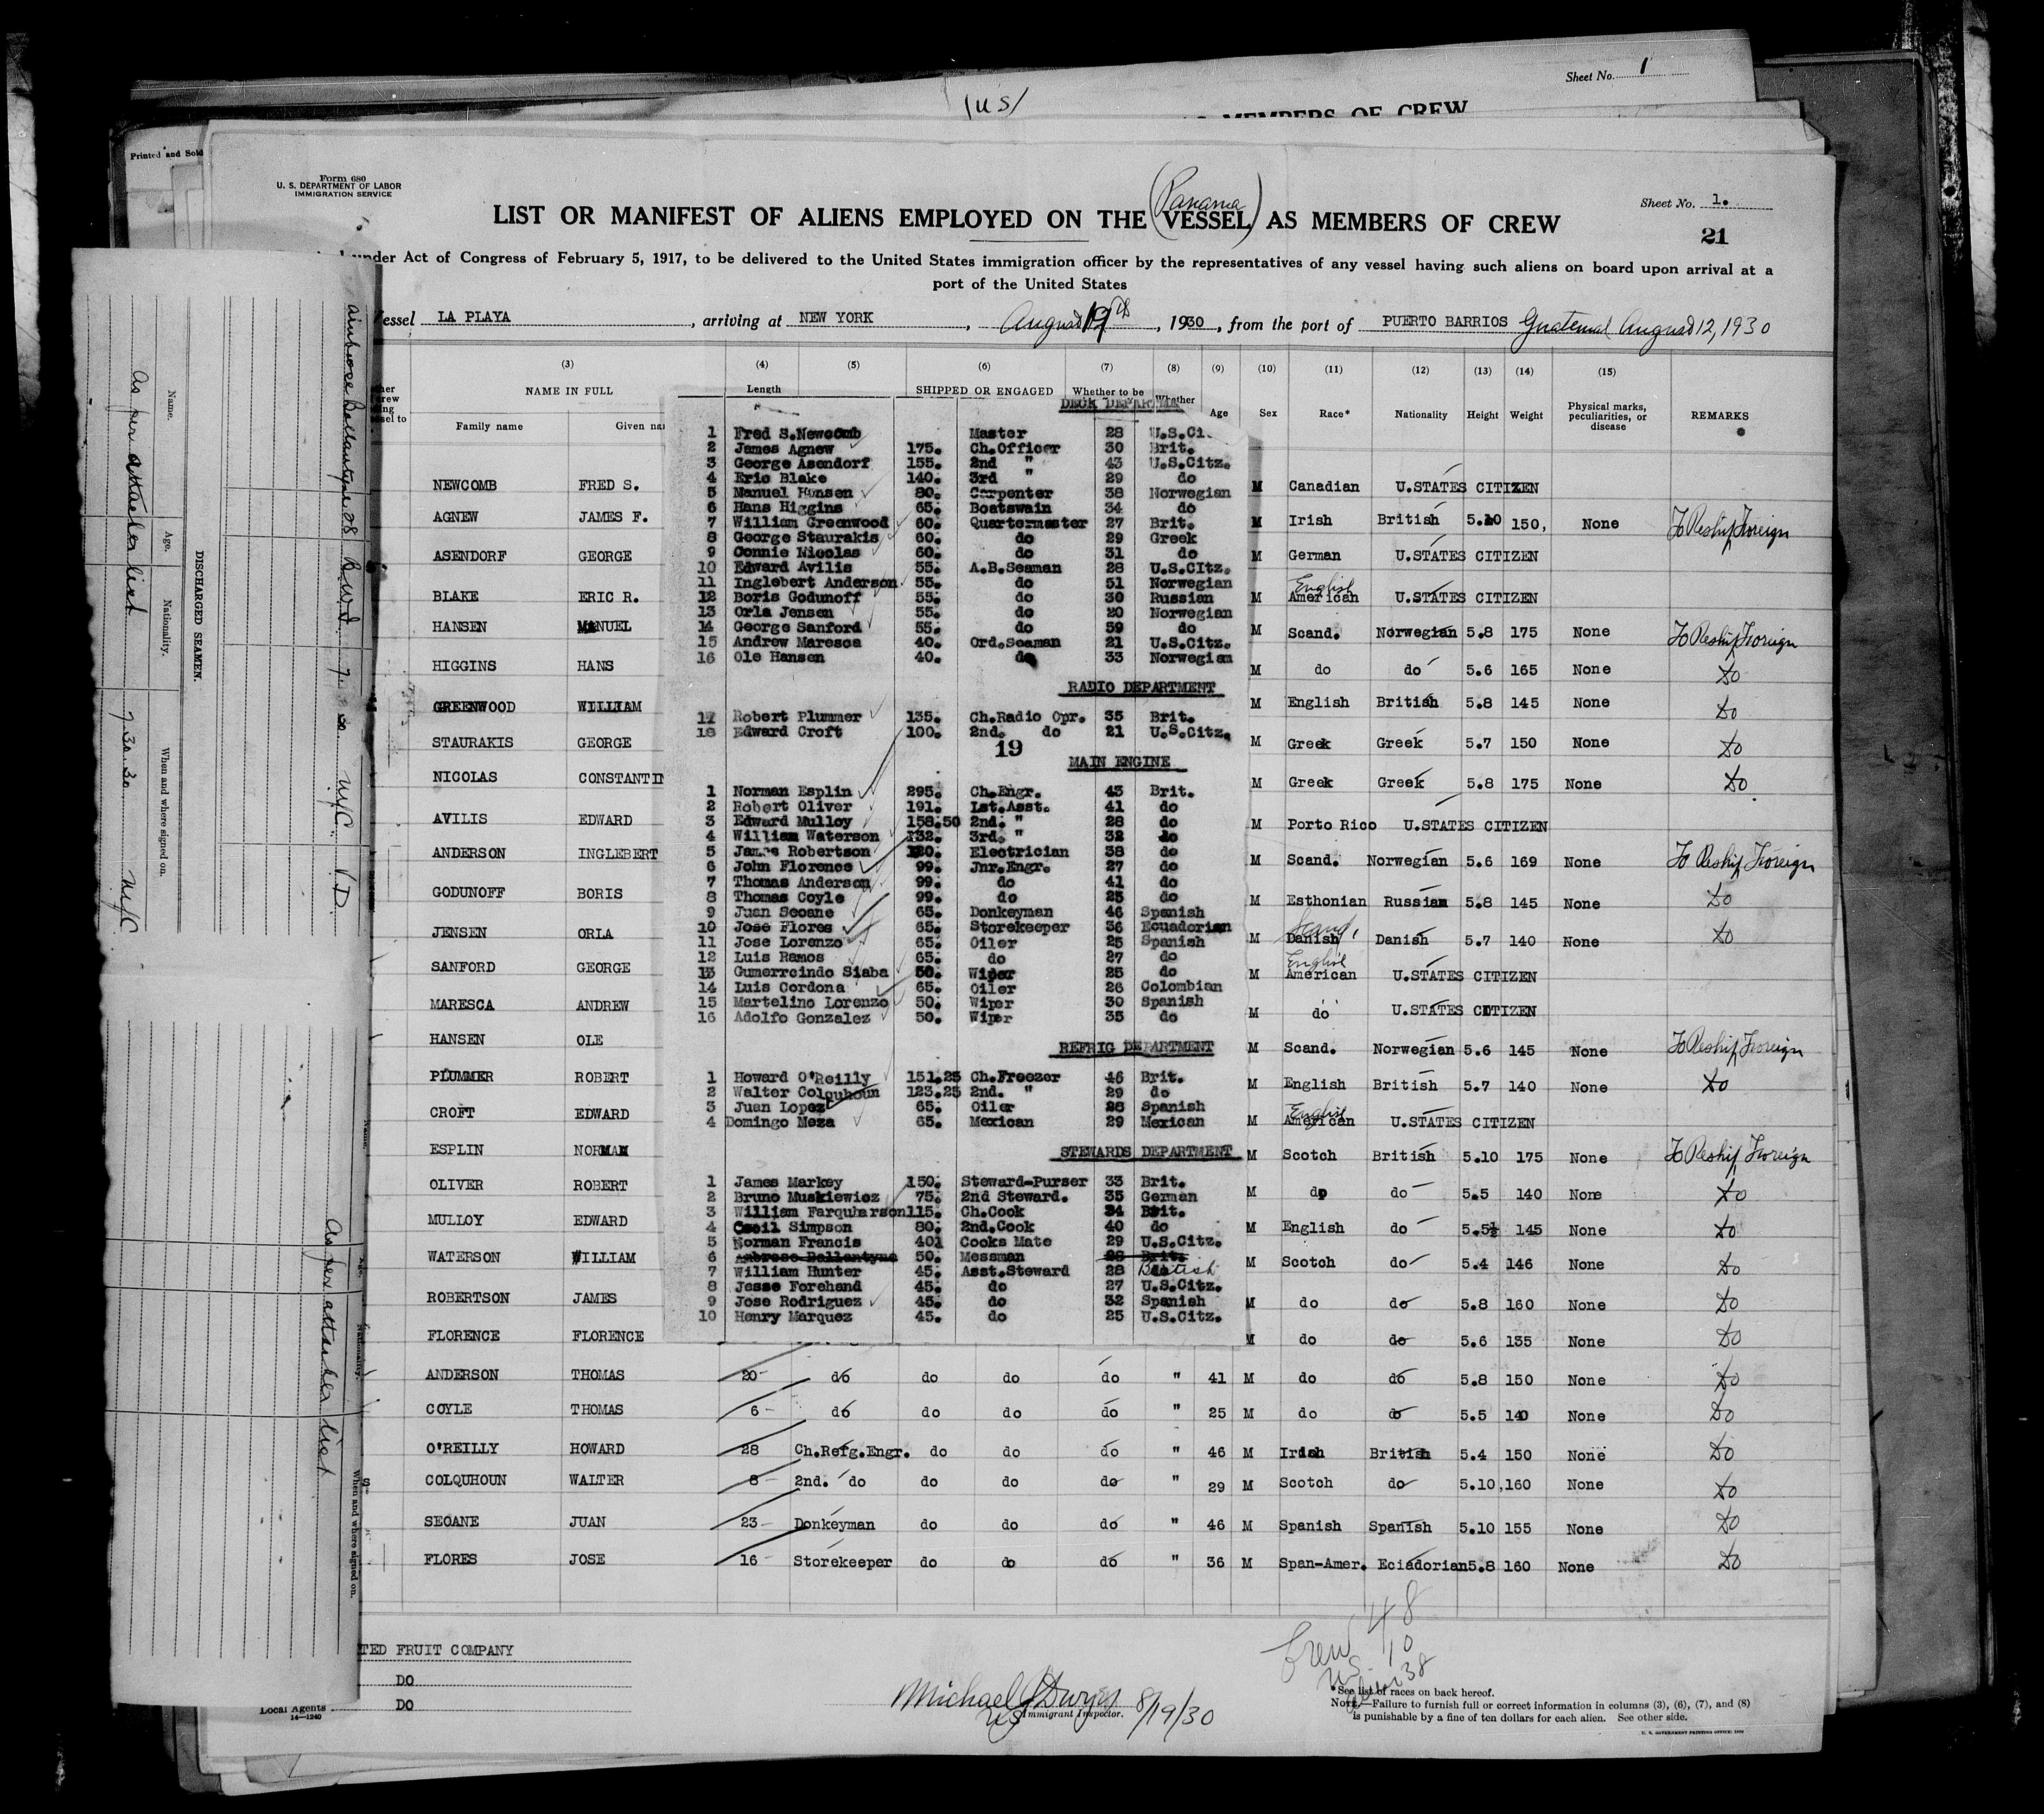 Sheet No. 1
(US)
MEMBERS OF CREW
Printed and Sold
Form 680
U. S. DEPARTMENT OF LABOR
IMMIGRATION SERVICE
Sheet No. 1.
(Panama)
LIST OR MANIFEST OF ALIENS EMPLOYED ON THE VESSEL AS MEMBERS OF CREW
21
under Act of Congress of February 5, 1917, to be delivered to the United States immigration officer by the representatives of any vessel having such aliens on board upon arrival at a
port of the United States
Vessel LA PLAYA, arriving at NEW YORK, August 19th, 1930, from the port of PUERTO BARRIOS Guatemal August 12, 1930
(3) (4) (5) (6) (7) (8) (9) (10) (11) (12) (13) (14) (15)
NAME IN FULL Length SHIPPED OR ENGAGED Whether to be Whether Age Sex Race* Nationality Height Weight Physical marks, peculiarities, or disease REMARKS
Family name
NEWCOMB FRED S. M Canadian U.STATES CITIZEN
AGNEW JAMES F. M Irish British 5.10 150, None To Reship Foreign
ASENDORF GEORGE M German U.STATES CITIZEN
English
BLAKE ERIC R. M American U.STATES CITIZEN
HANSEN MANUEL M Scand. Norwegian 5.8 175 None To Reship Foreign
HIGGINS HANS M do do 5.6 165 None Do
GREENWOOD WILLIAM M English British 5.8 145 None Do
STAURAKIS GEORGE M Greek Greek 5.7 150 None Do
NICOLAS CONSTANTIN M Greek Greek 5.8 175 None Do
AVILIS EDWARD M Porto Rico U.STATES CITIZEN
ANDERSON INGLEBERT M Scand. Norwegian 5.6 169 None To Reship Foreign
GODUNOFF BORIS M Esthonian Russian 5.8 145 None Do
Scand.
JENSEN ORLA M Danish Danish 5.7 140 None Do
English
SANFORD GEORGE M American U.STATES CITIZEN
MARESCA ANDREW M do U.STATES CITIZEN
HANSEN OLE M Scand. Norwegian 5.6 145 None To Reship Foreign
PLUMMER ROBERT M English British 5.7 140 None Do
English
CROFT EDWARD M American U.STATES CITIZEN
ESPLIN NORMAN M Scotch British 5.10 175 None To Reship Foreign
OLIVER ROBERT M do do 5.5 140 None Do
MULLOY EDWARD M English do 5.5½ 145 None Do
WATERSON WILLIAM M Scotch do 5.4 146 None Do
ROBERTSON JAMES M do do 5.8 160 None Do
FLORENCE FLORENCE M do do 5.6 135 None Do
ANDERSON THOMAS 20 do do do do " 41 M do do 5.8 150 None Do
COYLE THOMAS 6 do do do do " 25 M do do 5.5 140 None Do
O'REILLY HOWARD 28 Ch.Refg.Engr. do do do " 46 M Irish British 5.4 150 None Do
COLQUHOUN WALTER 8 2nd. do do do do " 29 M Scotch do 5.10, 160 None Do
SEOANE JUAN 23 Donkeyman do do do " 46 M Spanish Spanish 5.10 155 None Do
FLORES JOSE 16 Storekeeper do do do " 36 M Span-Amer. Eciadorian 5.8 160 None Do
DECK DEPARTME
1 Fred S.Newcomb Master 28 U.S.Ci
2 James Agnew 175. Ch.Officer 30 Brit.
3 George Asendorf 155. 2nd " 43 U.S.Citz.
4 Eric Blake 140. 3rd " 29 do
5 Manuel Hansen 80. Carpenter 38 Norwegian
6 Hans Higgins 65. Boatswain 34 do
7 William Greenwood 60. Quartermaster 27 Brit.
8 George Staurakis 60. do 29 Greek
9 Connie Nicolas 60. do 31 do
10 Edward Avilis 55. A.B.Seaman 28 U.S.CItz.
11 Inglebert Anderson 55. do 51 Norwegian
12 Boris Godunoff 55. do 30 Russian
13 Orla Jensen 55. do 20 Norwegian
14 George Sanford 55. do 59 do
15 Andrew Maresca 40. Ord.Seaman 21 U.S.Citz.
16 Ole Hansen 40. do 33 Norwegian
RADIO DEPARTMENT
17 Robert Plummer 135. Ch.Radio Opr. 35 Brit.
18 Edward Croft 100. 2nd. do 21 U.S.Citz.
19
MAIN ENGINE
1 Norman Esplin 295. Ch.Engr. 43 Brit.
2 Robert Oliver 191. 1st.Asst. 41 do
3 Edward Mulloy 158.50 2nd. " 28 do
4 William Waterson 132. 3rd. " 32 do
5 James Robertson 120. Electrician 38 do
6 John Florence 99. Jnr.Engr. 27 do
7 Thomas Anderson 99. do 41 do
8 Thomas Coyle 99. do 25 do
9 Juan Seoane 65. Donkeyman 46 Spanish
10 Jose Flores 65. Storekeeper 36 Ecuadorian
11 Jose Lorenzo 65. Oiler 25 Spanish
12 Luis Ramos 65. do 27 do
13 Gumerrcindo Siaba 50. Wiper 25 do
14 Luis Cordona 65. Oiler 26 Colombian
15 Martelino Lorenzo 50. Wiper 30 Spanish
16 Adolfo Gonzalez 50. Wiper 35 do
REFRIG DEPARTMENT
1 Howard O'Reilly 151.25 Ch.Freezer 46 Brit.
2 Walter Colquhoun 123.25 2nd. " 29 do
3 Juan Lopez 65. Oiler 28 Spanish
4 Domingo Meza 65. Mexican 29 Mexican
STEWARDS DEPARTMENT
1 James Markey 150. Steward-Purser 33 Brit.
2 Bruno Muskiewiez 75. 2nd Steward. 35 German
3 William Farquharson 115. Ch.Cook 34 Brit.
4 Cecil Simpson 80. 2nd.Cook 40 do
5 Norman Francis 40. Cooks Mate 29 U.S.Citz.
6 Ambrose Ballantyne 50. Messman 28 Brit.
7 William Hunter 45. Asst.Steward 28 British
8 Jesse Forehand 45. do 27 U.S.Citz.
9 Jose Rodriguez 45. do 32 Spanish
10 Henry Marquez 45. do 25 U.S.Citz.
Name. Age. Nationality. When and where signed on.
DISCHARGED SEAMEN.
As per attached list 7.30.30 NYC
Ambrose Ballantyne 28 B.W.I. NYC V.D.
Nationality. When and where signed on.
As per attached list
TED FRUIT COMPANY
DO
Local Agents DO
14—1240
Michael J Dwyer 8/19/30
US Immigrant Inspector.
Crew 48
US 10
38
*See list of races on back hereof.
NOTE.—Failure to furnish full or correct information in columns (3), (6), (7), and (8)
is punishable by a fine of ten dollars for each alien. See other side.
U. S. GOVERNMENT PRINTING OFFICE